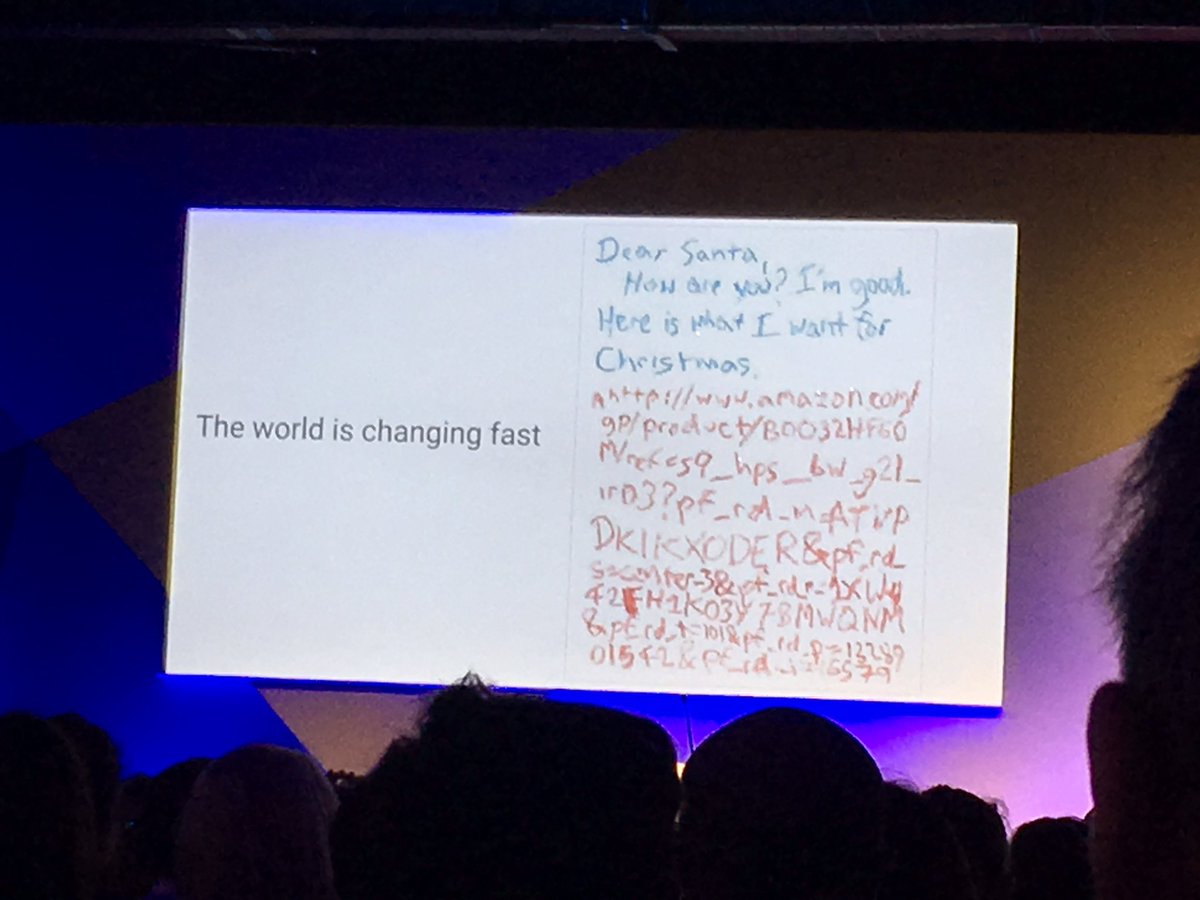 The world is changing fast
Dear Santa,
How are you? I'm good.
Here is what I want for
Christmas.
http://www.amazon.com/
gp/product/B0032HF60
M/ref=s9_hps_bw_g21_
ir03?pf_rd_m=ATVP
DKIKX0DER&pf_rd_
s=center-3&pf_rd_r=1XWQ
42FH1K03Y7BMWQNM
&pf_rd_t=101&pf_rd_p=13289
01542&pf_rd_i=16579